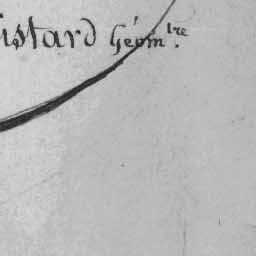 istard Géom.tre